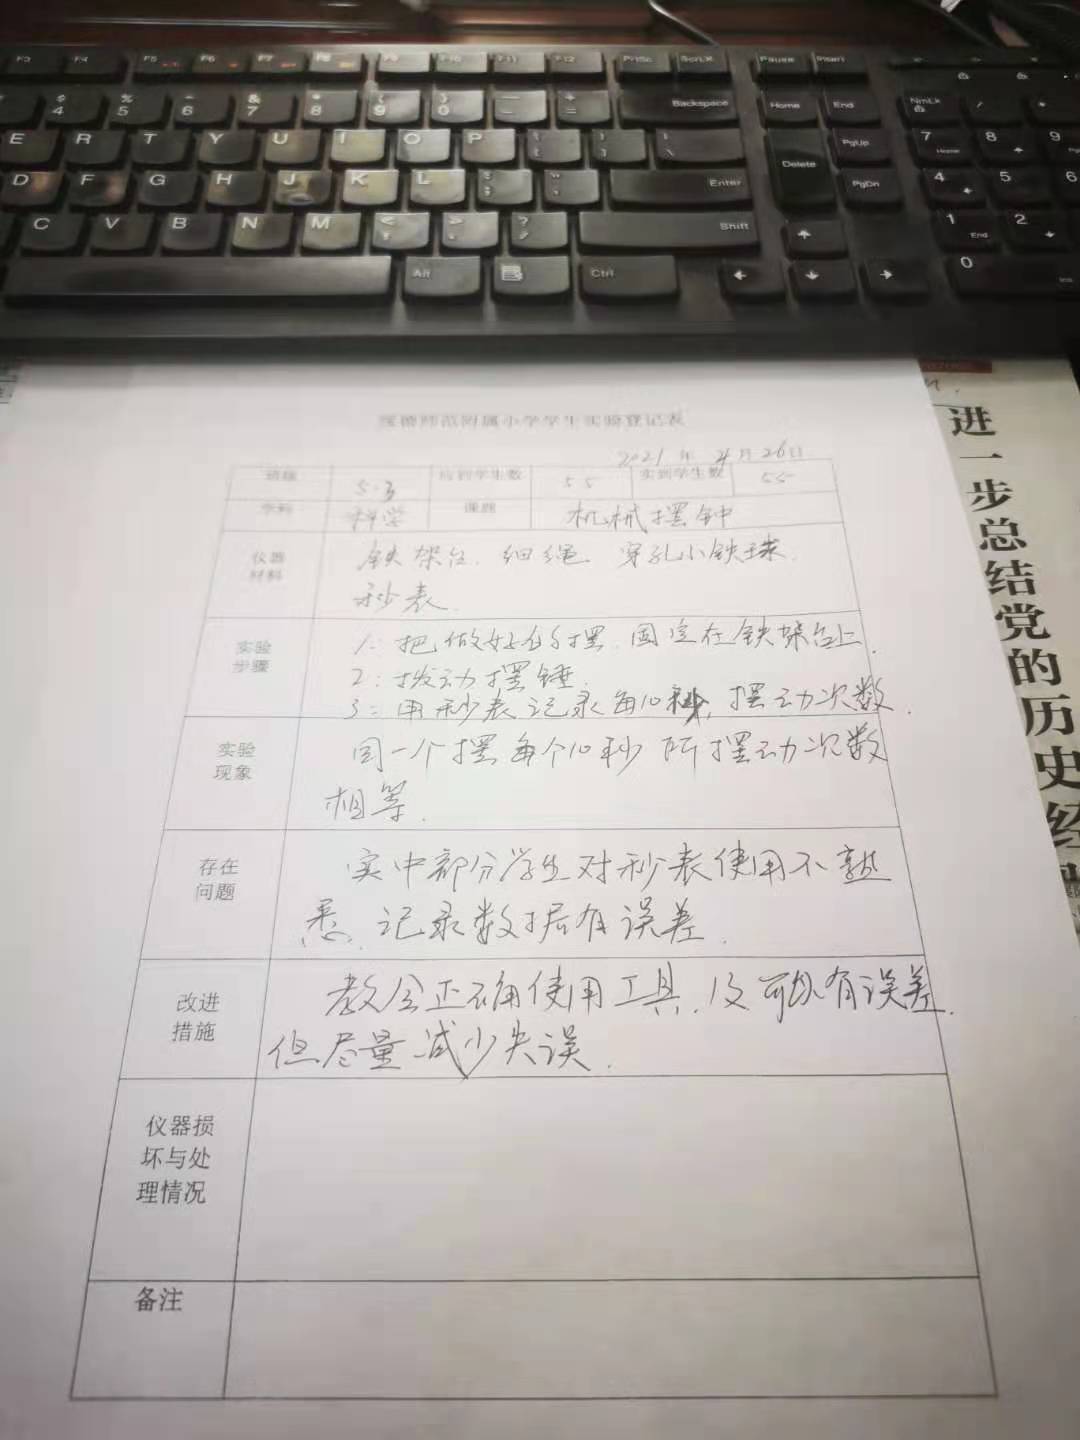 F3 F4 F5 F6 F7 F8 F9 F10 F11 F12 PrtSc ScrLK Pause Insert
$ 4 % 5 ^ 6 & 7 * 8 ( 9 ) 0 — - + = Backspace Home End NmLk / *
E R T Y U I O P { [ } ] | \ Delete PgUp 7 Home 8 9
D F G H J K L : ; " ' Enter PgDn 4 5 6
C V B N M < , > . ? / Shift 1 End 2
Alt Ctrl 0 Ins
师范附属小学学生实验登记表
2021 年 4 月 26 日
班级 5.3 应到学生数 55 实到学生数 55
学科 科学 课题 机械摆钟
仪器
材料
铁架台、细绳、穿孔小铁球、
秒表.
实验
步骤
1: 把做好的摆固定在铁架台上.
2: 拨动摆锤.
3: 用秒表记录每10秒, 摆动次数.
实验
现象
同一个摆每个10秒所摆动次数
相等.
存在
问题
实中部分学生对秒表使用不熟
悉、记录数据有误差.
改进
措施
教会正确使用工具, 及可能有误差.
但尽量减少失误.
仪器损
坏与处
理情况
备注
进一步总结党的历史经